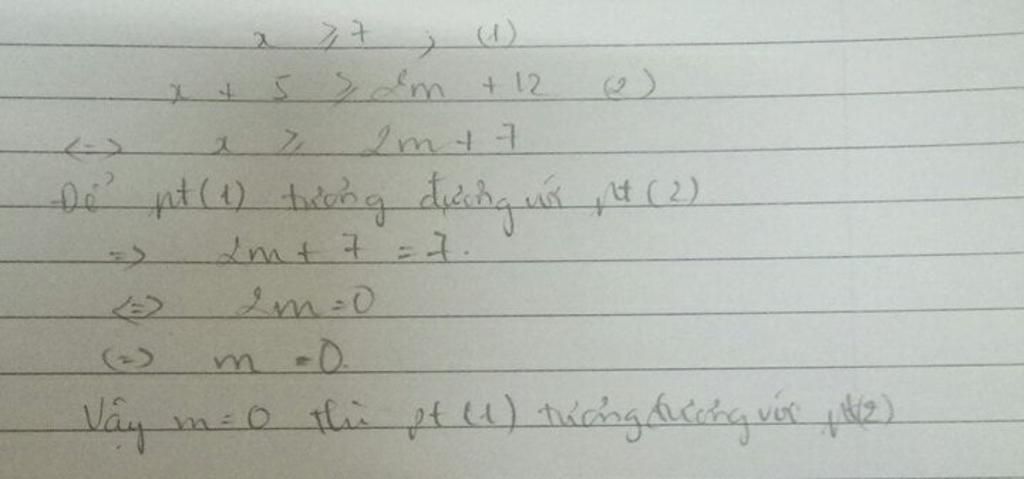 x ≥ 7 ; (1)
x + 5 ≥ 2m + 12 (2)
<=> x ≥ 2m + 7
Để pt (1) tương đương với pt (2)
=> 2m + 7 = 7.
<=> 2m = 0
(=) m = 0.
Vậy m = 0 thì pt (1) tương đương với pt(2)